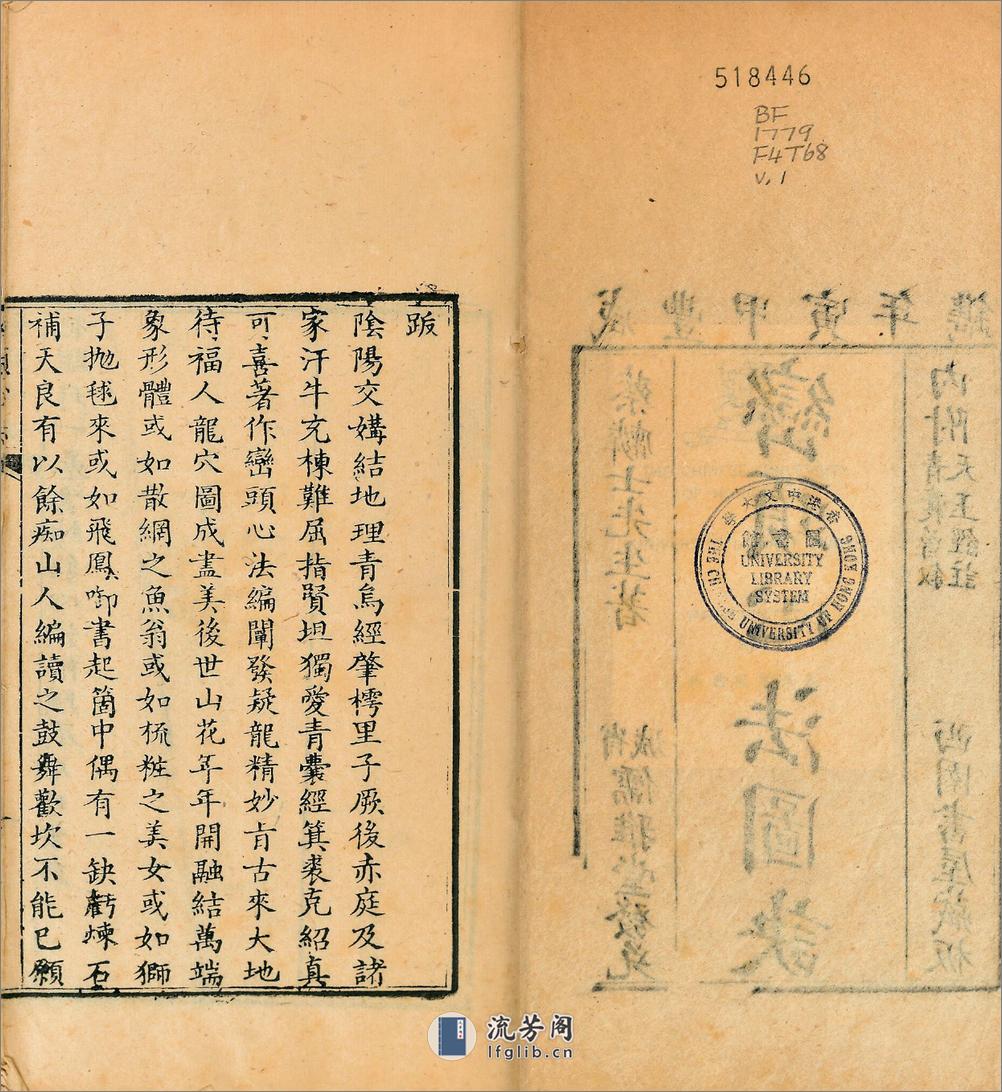 518446
BF
1779
F4T68
v.1
咸豐甲寅年鐫
蔡麟士先生著
法圖訣
內附天玉經註
西園書屋藏板
香港中文大學
圖書館
THE CH
UNIVERSITY OF HONG KONG
UNIVERSITY
LIBRARY
SYSTEM
跋
陰陽交媾結地理青烏經肇樗里子厥後赤庭及諸
家汗牛充棟難屈指賢坦獨愛青囊經箕裘克紹真
可喜著作巒頭心法編闡發疑龍精妙旨古來大地
待福人龍穴圖成盡美後世山花年年開融結萬端
象形體或如散網之魚翁或如梳粧之美女或如獅
子拋毬來或如飛鳳啣書起箇中偶有一缺虧煉石
補天良有以餘痴山人編讀之鼓舞歡坎不能已願
流芳阁
lfglib.cn